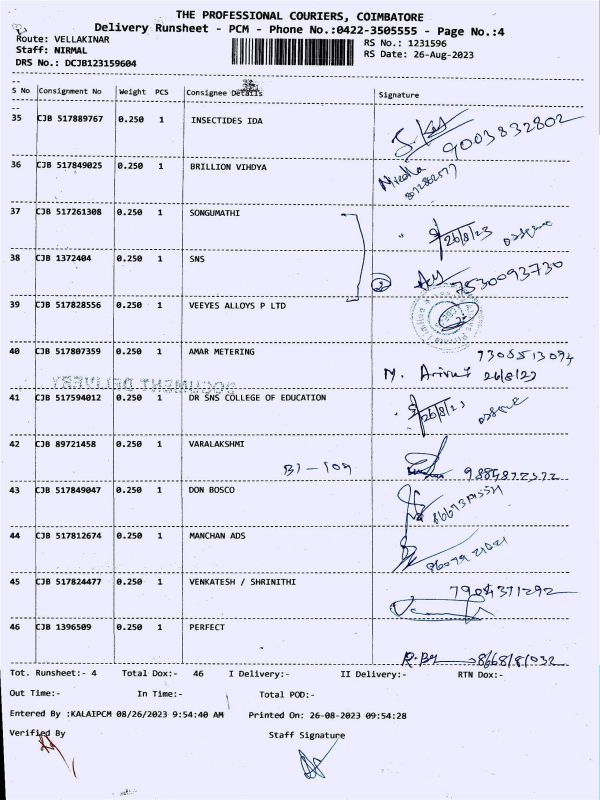 THE PROFESSIONAL COURIERS, COIMBATORE
Delivery Runsheet - PCM - Phone No.:0422-3505555 - Page No.:4
Route: VELLAKINAR
Staff: NIRMAL
DRS No.: DCJB123159604
RS No.: 1231596
RS Date: 26-Aug-2023
S No Consignment No Weight PCS Consignee Details Signature
35 CJB 517889767 0.250 1 INSECTIDES IDA
9003832802
36 CJB 517849025 0.250 1 BRILLION VIHDYA
37 CJB 517261308 0.250 1 SONGUMATHI
26/8/23
38 CJB 1372404 0.250 1 SNS
2 7530093730
39 CJB 517828556 0.250 1 VEEYES ALLOYS P LTD
40 CJB 517807359 0.250 1 AMAR METERING
7305513094
M. 26/8/23
DOCUMENT DELIVERY
41 CJB 517594012 0.250 1 DR SNS COLLEGE OF EDUCATION
26/8/23
42 CJB 89721458 0.250 1 VARALAKSHMI
B1-109
43 CJB 517849047 0.250 1 DON BOSCO
44 CJB 517812674 0.250 1 MANCHAN ADS
45 CJB 517824477 0.250 1 VENKATESH / SHRINITHI
7904371292
46 CJB 1396509 0.250 1 PERFECT
8668181032
Tot. Runsheet:- 4 Total Dox:- 46 I Delivery:- II Delivery:- RTN Dox:-
Out Time:- In Time:- Total POD:-
Entered By :KALAIPCM 08/26/2023 9:54:40 AM Printed On: 26-08-2023 09:54:28
Verified By Staff Signature